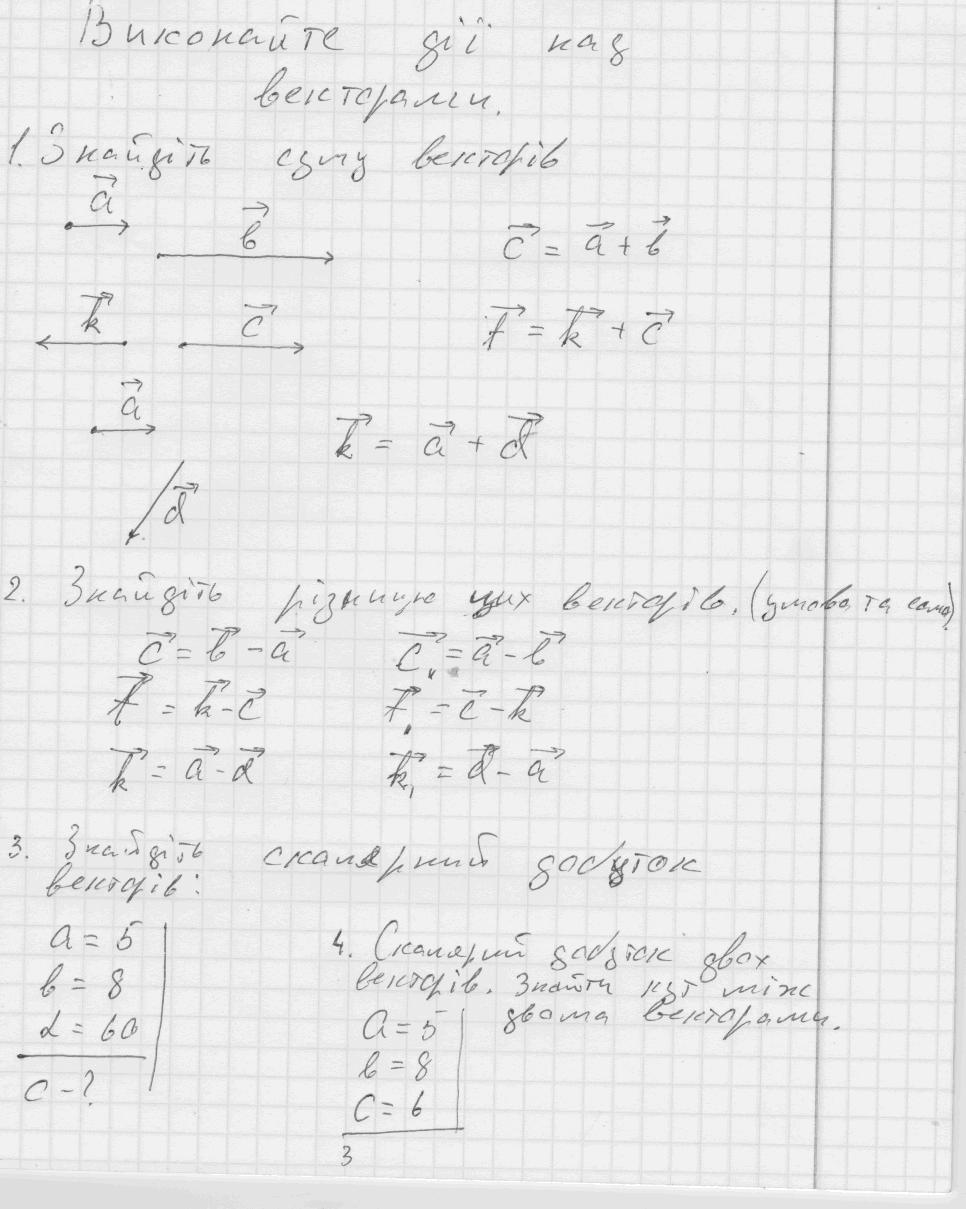 Виконайте дії над
векторами.
1. Знайдіть суму векторів
a⃗
b⃗
c⃗ = a⃗ + b⃗
k⃗
c⃗
f⃗ = k⃗ + c⃗
a⃗
k⃗ = a⃗ + d⃗
d⃗
2. Знайдіть різницю цих векторів. (умова та сама)
c⃗ = b⃗ - a⃗
c⃗₁ = a⃗ - b⃗
f⃗ = k⃗ - c⃗
f⃗₁ = c⃗ - k⃗
k⃗ = a⃗ - d⃗
k⃗₁ = d⃗ - a⃗
3. Знайдіть скалярний добуток
векторів:
a = 5
b = 8
α = 60
c - ?
4. Скалярий добуток двох
векторів. Знайти кут між
двома векторами.
a = 5
b = 8
c = 6
3